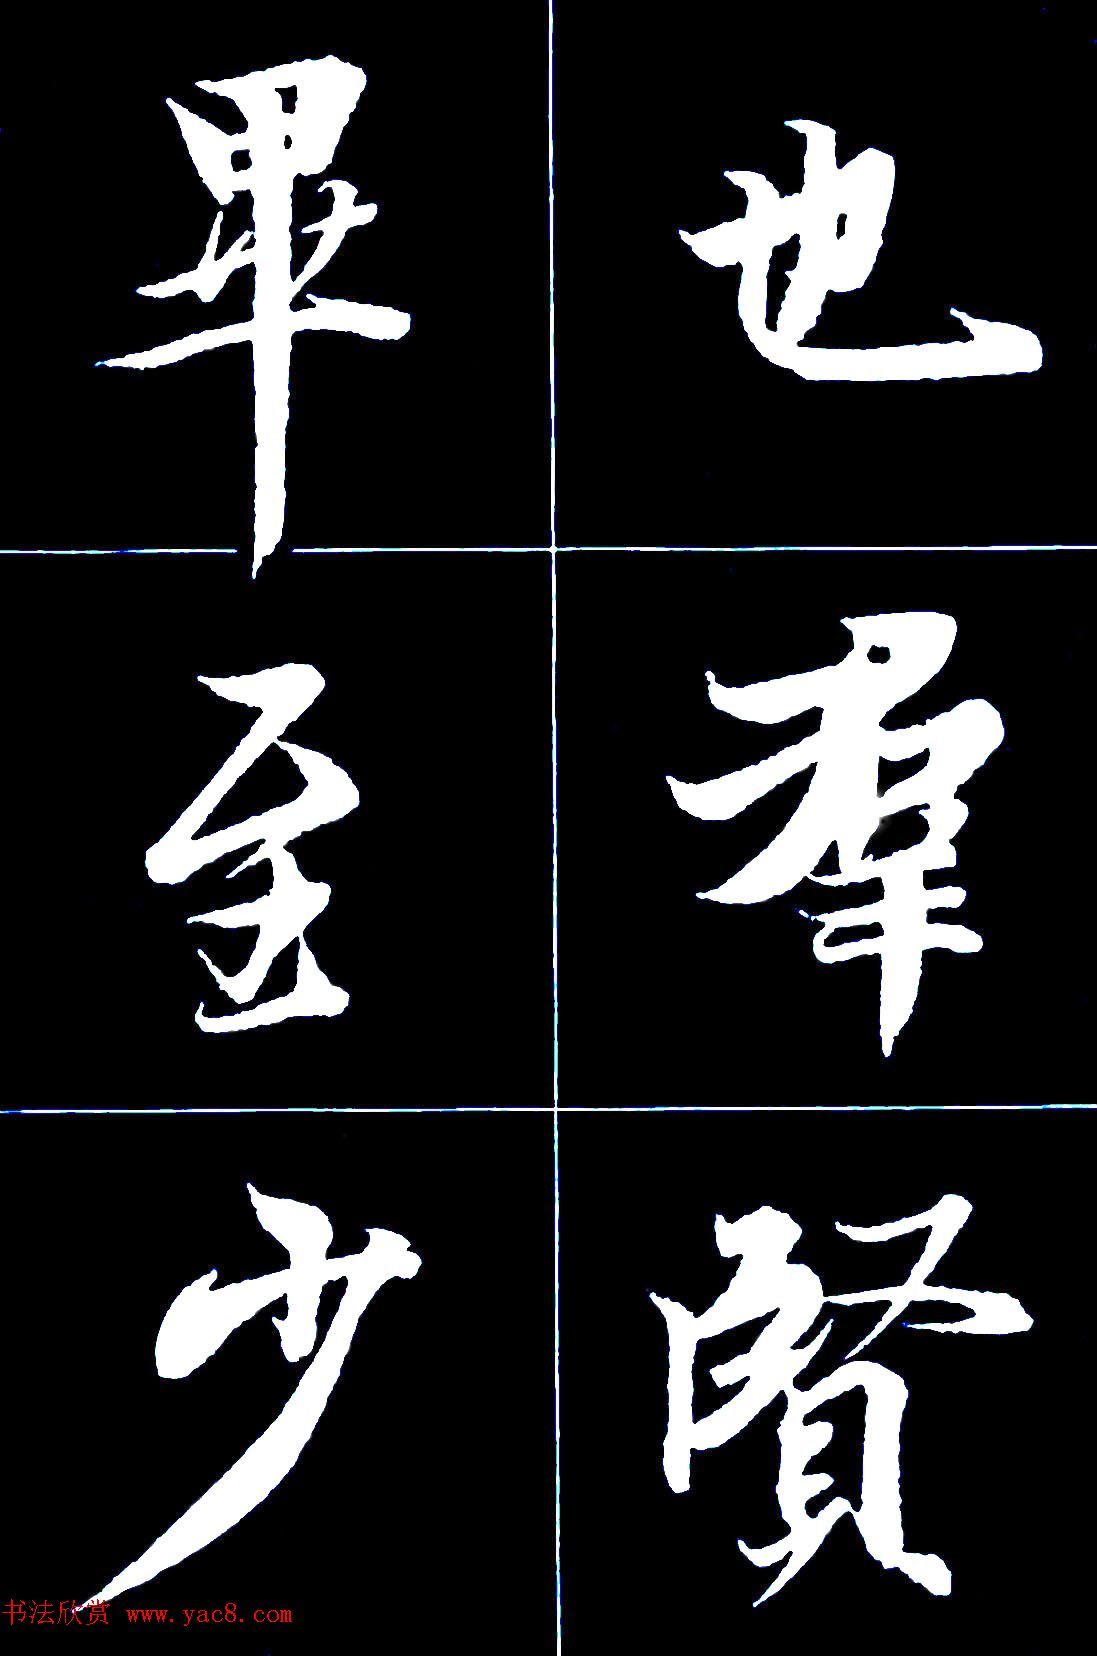 也羣賢
畢至少
书法欣赏 www.yac8.com